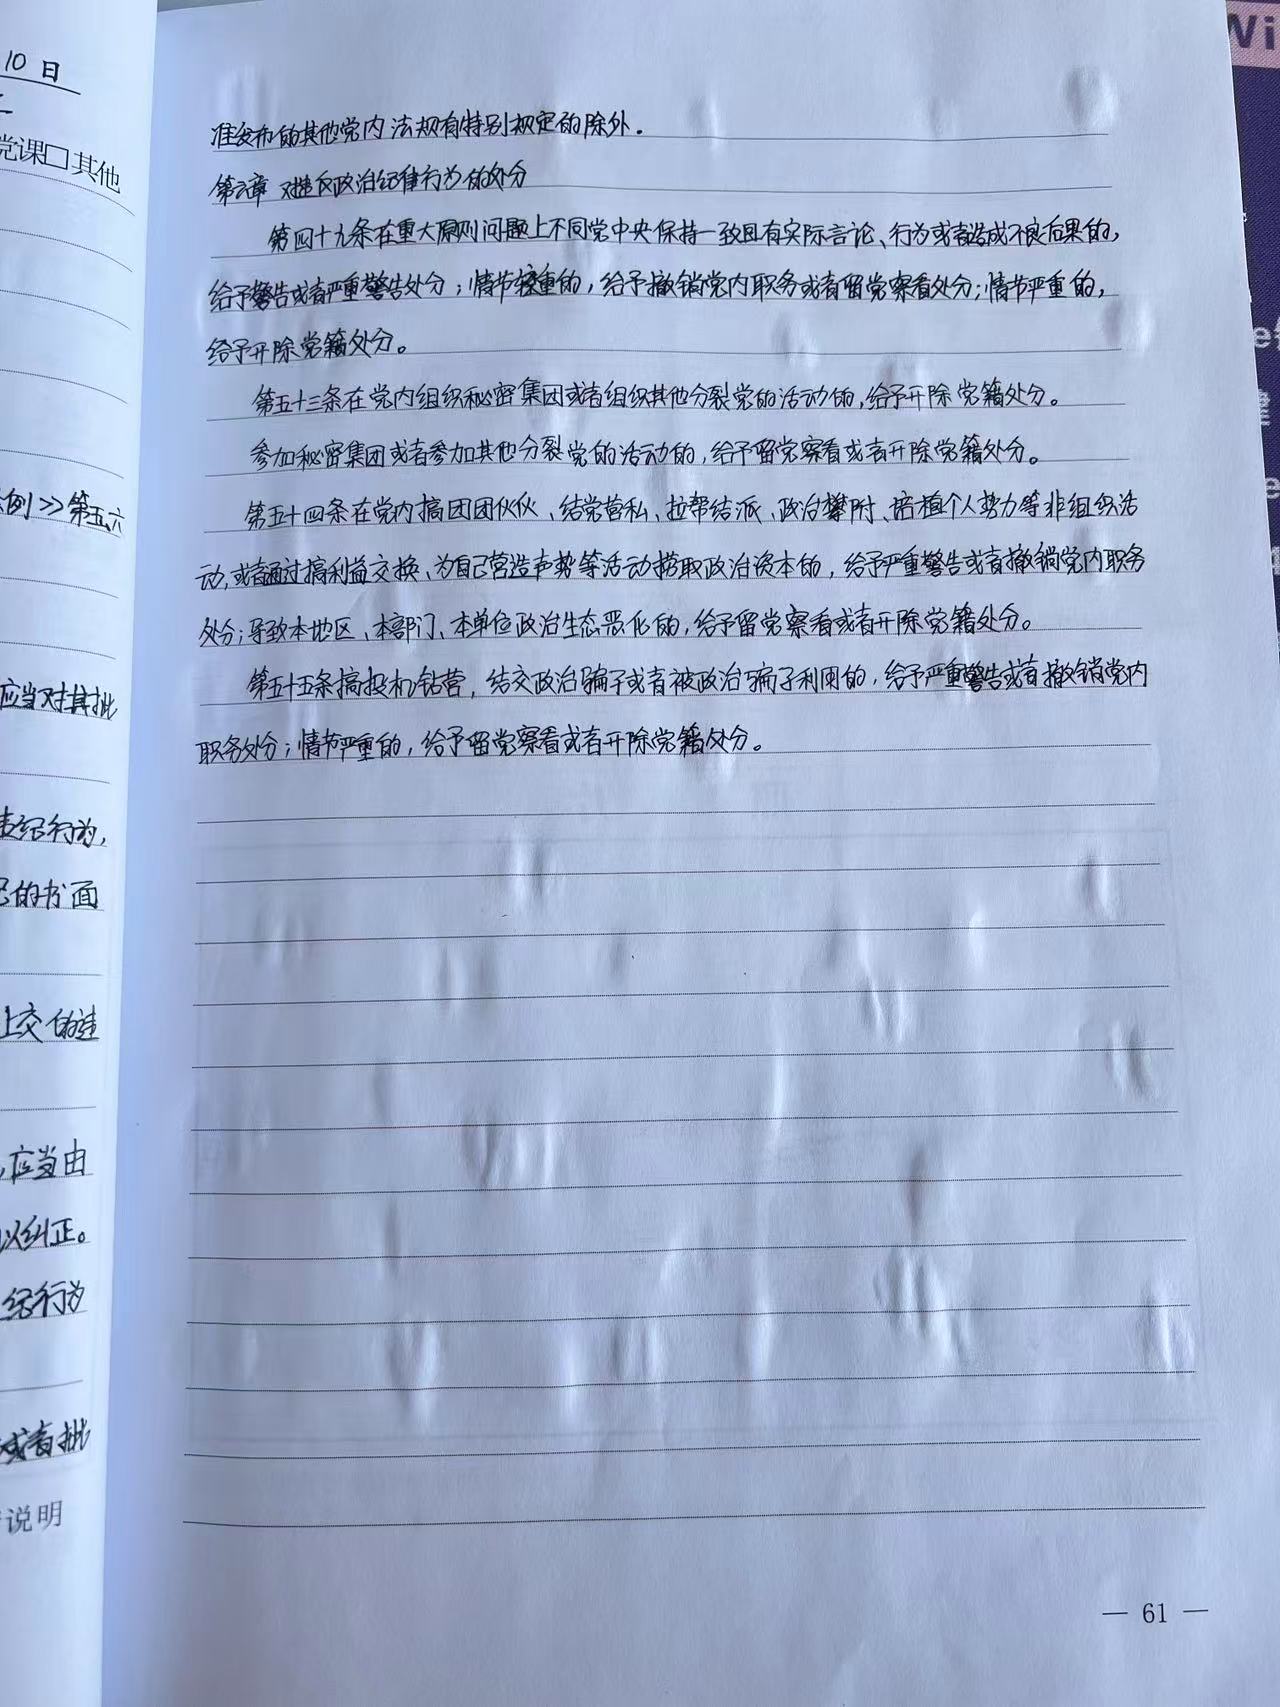 10日
党课□其他
例>>第五、六
应当对其批
纪行为,
的书面
上交的违
,应当由
以纠正。
纪行为
或者批
说明
准发布的其他党内法规有特别规定的除外.
第六章 对违反政治纪律行为的处分
第四十九条在重大原则问题上不同党中央保持一致且有实际言论、行为或者造成不良后果的,
给予警告或者严重警告处分;情节较重的,给予撤销党内职务或者留党察看处分;情节严重的,
给予开除党籍处分。
第五十三条在党内组织秘密集团或者组织其他分裂党的活动的,给予开除党籍处分。
参加秘密集团或者参加其他分裂党的活动的,给予留党察看或者开除党籍处分。
第五十四条在党内搞团团伙伙、结党营私、拉帮结派、政治攀附、培植个人势力等非组织活
动,或者通过搞利益交换、为自己营造声势等活动捞取政治资本的,给予严重警告或者撤销党内职务
处分;导致本地区、本部门、本单位政治生态恶化的,给予留党察看或者开除党籍处分。
第五十五条搞投机钻营,结交政治骗子或者被政治骗子利用的,给予严重警告或者撤销党内
职务处分;情节严重的,给予留党察看或者开除党籍处分。
— 61 —
Wi